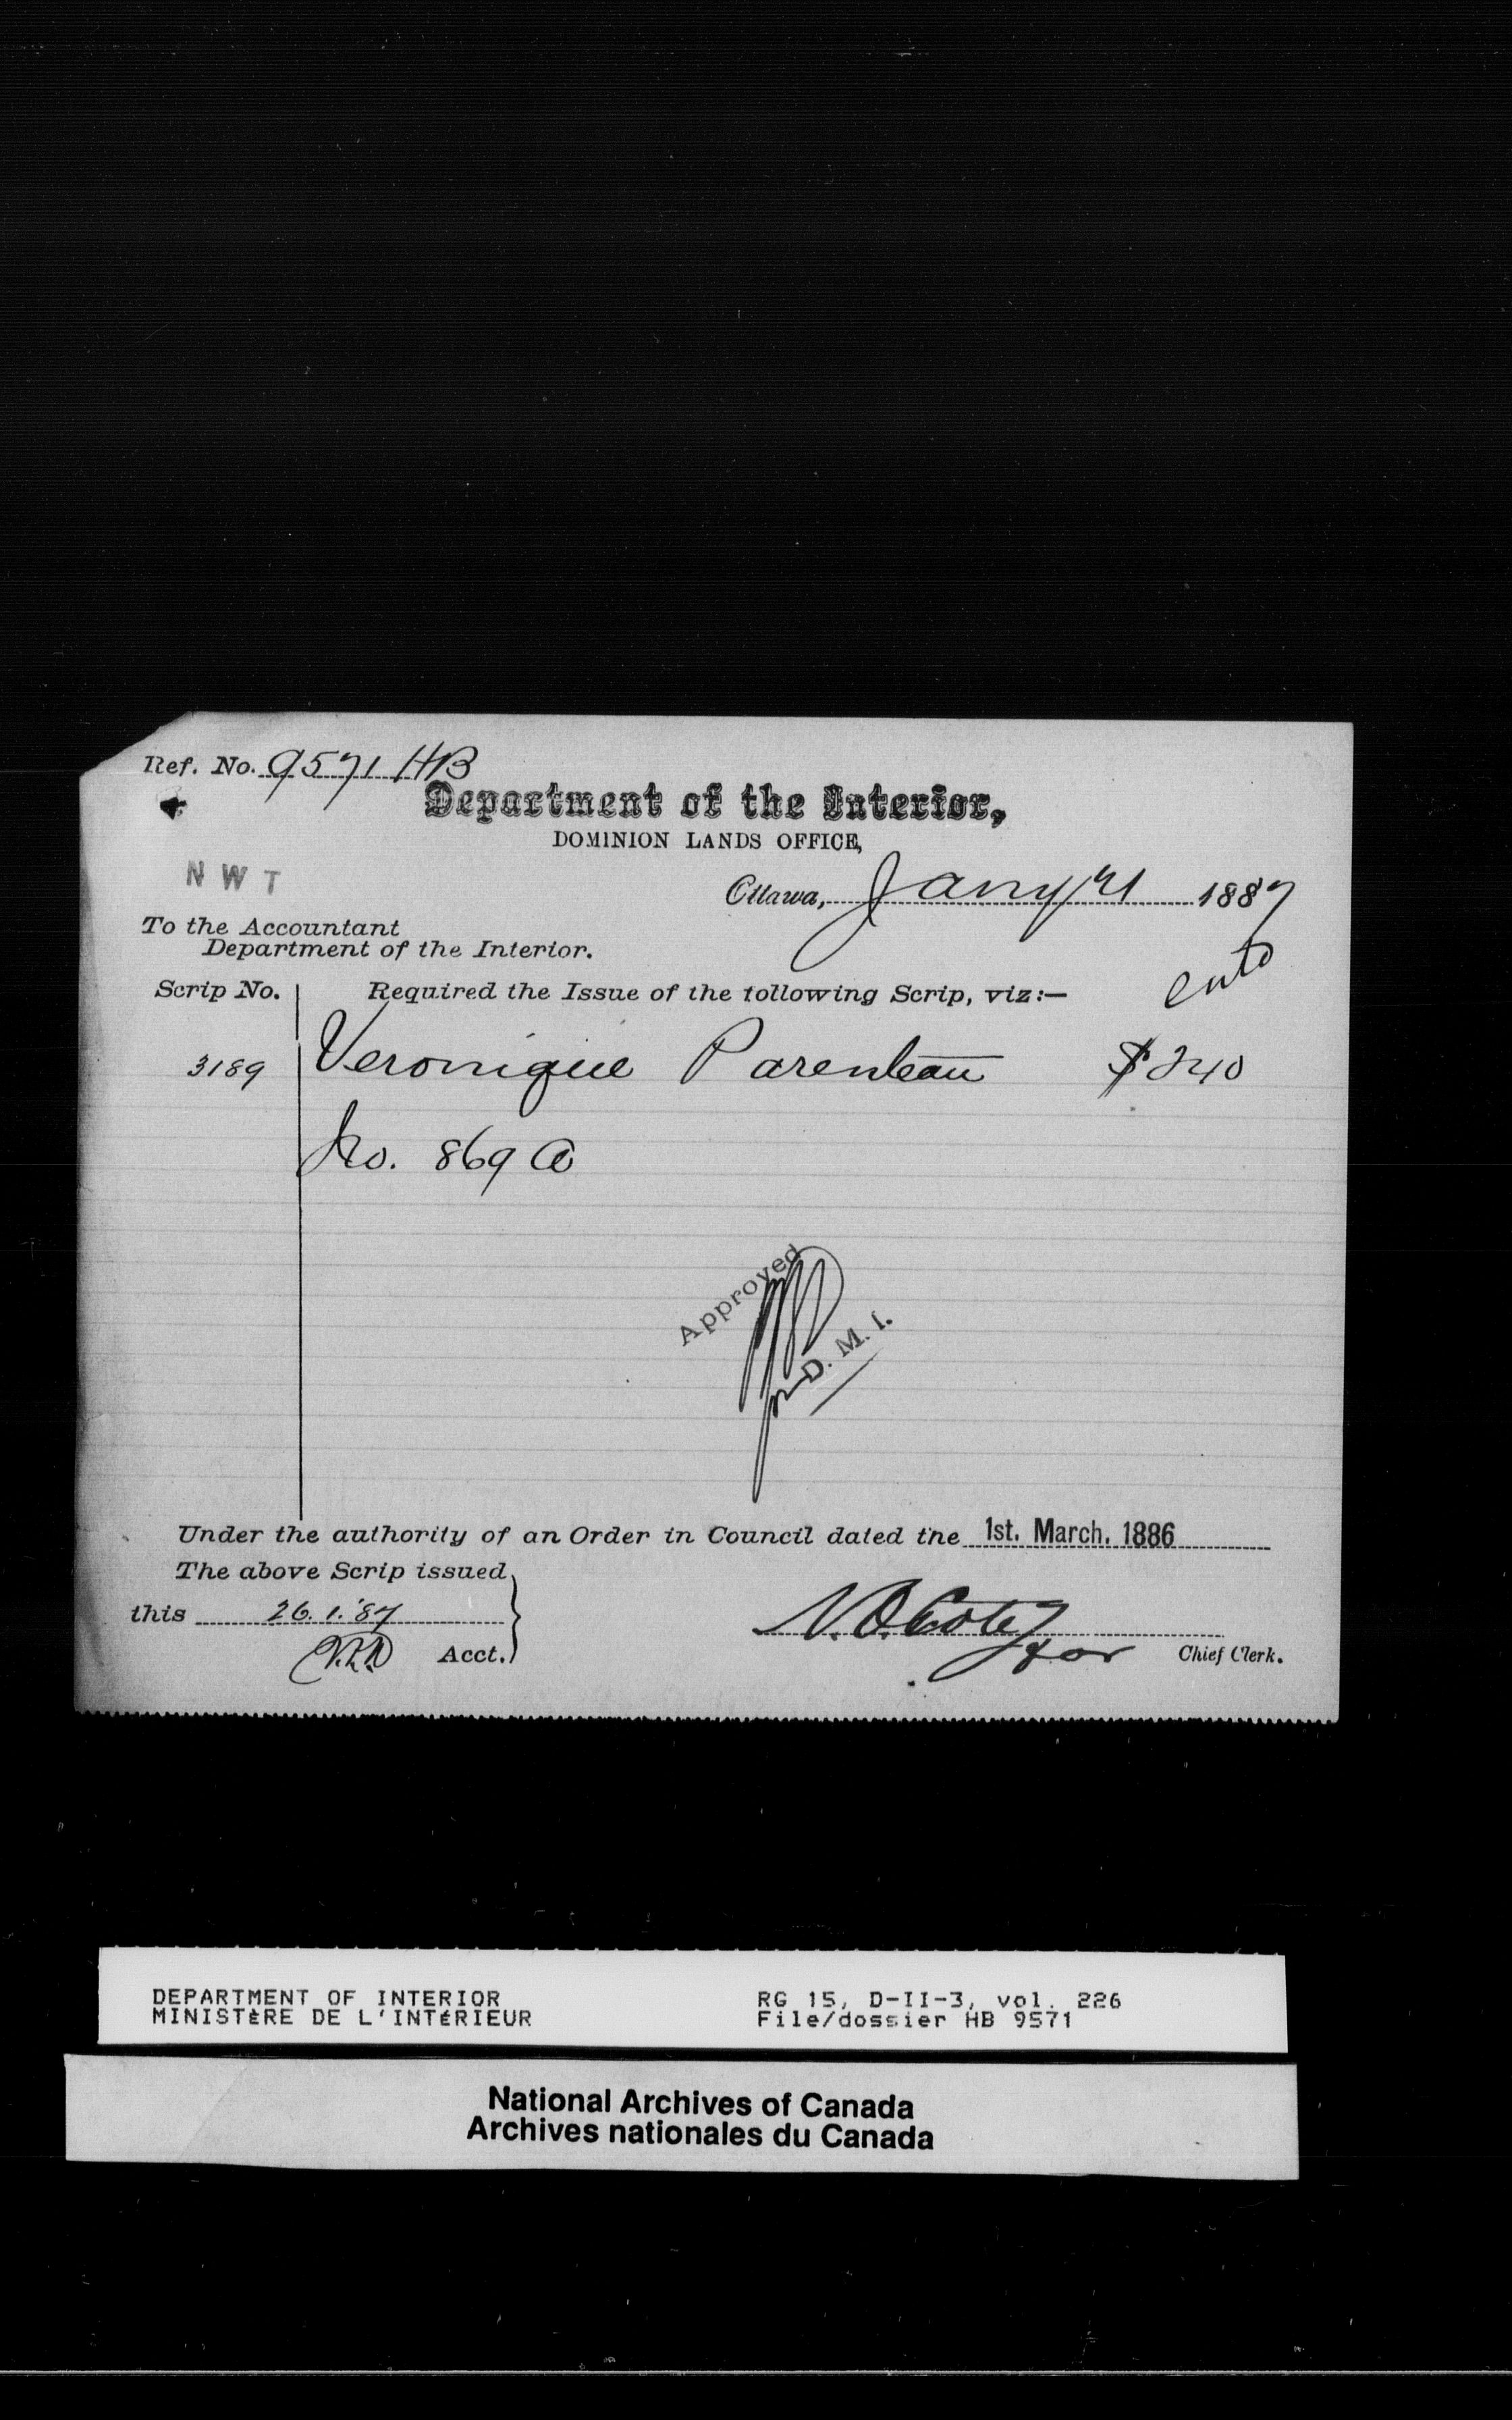 Ref. No. 9571 HB
Department of the Interior,
DOMINION LANDS OFFICE,
N W T
Ottawa, Jany 21 1887
To the Accountant
Department of the Interior.
Scrip No. Required the Issue of the following Scrip, viz:—
3189 Veronique Parenteau $240
No. 869 A
Approved
D. M. I.
Under the authority of an Order in Council dated the 1st. March. 1886
The above Scrip issued
this 26.1.'87
Acct.
N.O. Coté for Chief Clerk.
DEPARTMENT OF INTERIOR RG 15, D-II-3, vol. 226
MINISTÈRE DE L'INTÉRIEUR File/dossier HB 9571
National Archives of Canada
Archives nationales du Canada